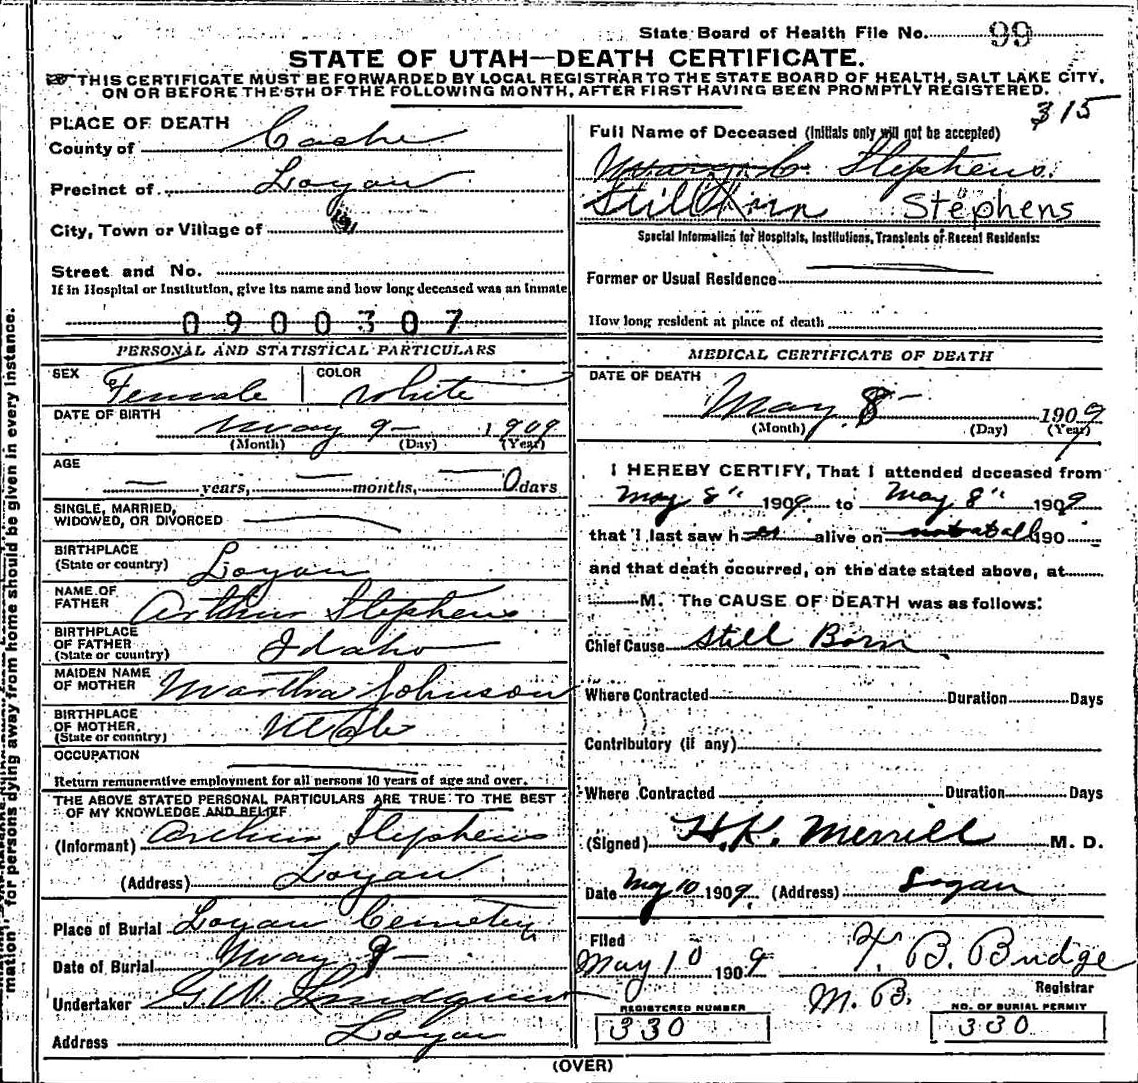 State Board of Health File No. 99
STATE OF UTAH—DEATH CERTIFICATE.
THIS CERTIFICATE MUST BE FORWARDED BY LOCAL REGISTRAR TO THE STATE BOARD OF HEALTH, SALT LAKE CITY,
ON OR BEFORE THE 5TH OF THE FOLLOWING MONTH, AFTER FIRST HAVING BEEN PROMPTLY REGISTERED.
315
PLACE OF DEATH
County of Cache
Precinct of Logan
City, Town or Village of
Street and No.
If in Hospital or Institution, give its name and how long deceased was an inmate
0900307
PERSONAL AND STATISTICAL PARTICULARS
SEX Female COLOR White
DATE OF BIRTH May 9 - 1909
(Month) (Day) (Year)
AGE
— years, — months, — 0 days
SINGLE, MARRIED,
WIDOWED, OR DIVORCED
BIRTHPLACE
(State or country) Logan
NAME OF
FATHER Arthur Stephens
BIRTHPLACE
OF FATHER
(State or country) Idaho
MAIDEN NAME
OF MOTHER Martha Johnson
BIRTHPLACE
OF MOTHER,
(State or country) Utah
OCCUPATION
Return remunerative employment for all persons 10 years of age and over.
THE ABOVE STATED PERSONAL PARTICULARS ARE TRUE TO THE BEST
OF MY KNOWLEDGE AND BELIEF
(Informant) Arthur Stephens
(Address) Logan
Place of Burial Logan Cemetery
Date of Burial May 9 -
Undertaker G.W. Lindquist
Address Logan
Full Name of Deceased (Initials only will not be accepted)
Stephens.
Stillborn Stephens
Special Information for Hospitals, Institutions, Transients or Recent Residents:
Former or Usual Residence
How long resident at place of death
MEDICAL CERTIFICATE OF DEATH
DATE OF DEATH
May 8 - 1909
(Month) (Day) (Year)
9
I HEREBY CERTIFY, That I attended deceased from
May 8" 1909 to May 8" 1909
that I last saw her alive on not at all 190
and that death occurred, on the date stated above, at
M. The CAUSE OF DEATH was as follows:
Chief Cause Still Born
Where Contracted Duration Days
Contributory (if any)
Where Contracted Duration Days
(Signed) H.K. Merrill M. D.
Date May 10 1909. (Address) Logan
Filed
May 10 1909 F. B. Budge
Registrar
M. B.
REGISTERED NUMBER NO. OF BURIAL PERMIT
330 330
(OVER)
for persons dying away from home should be given in every instance.